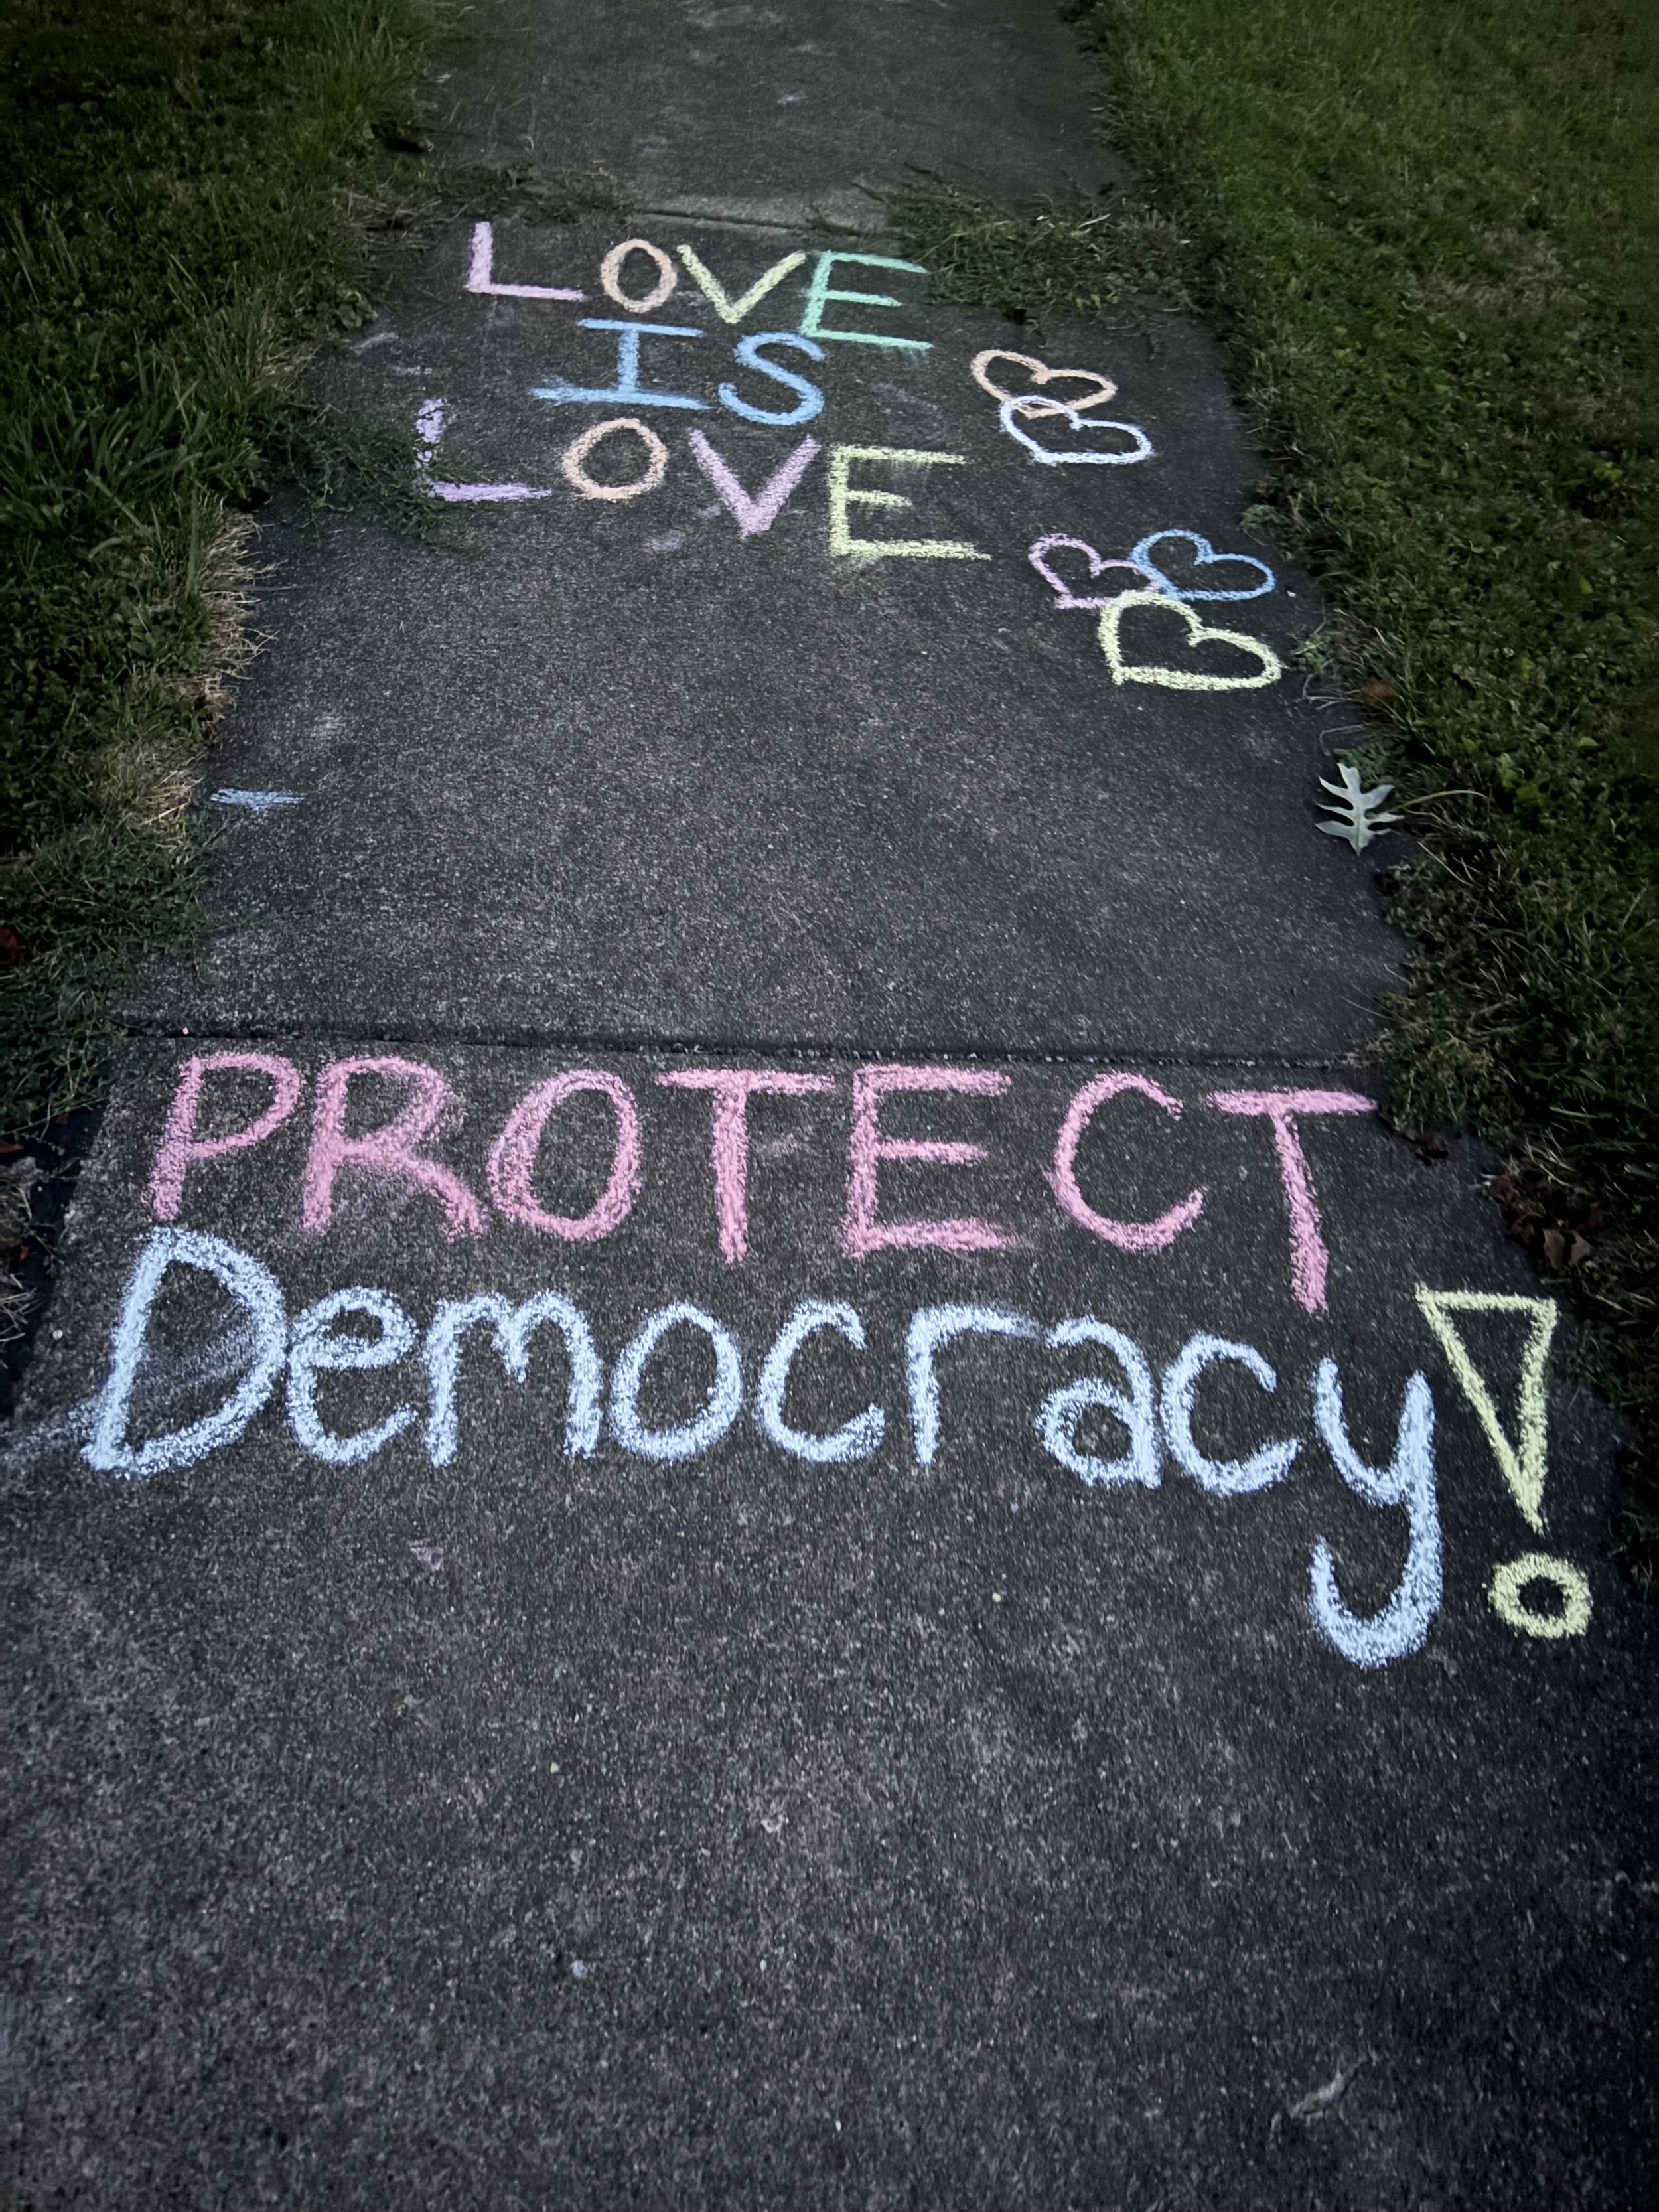 LOVE
IS
LOVE
PROTECT
Democracy!